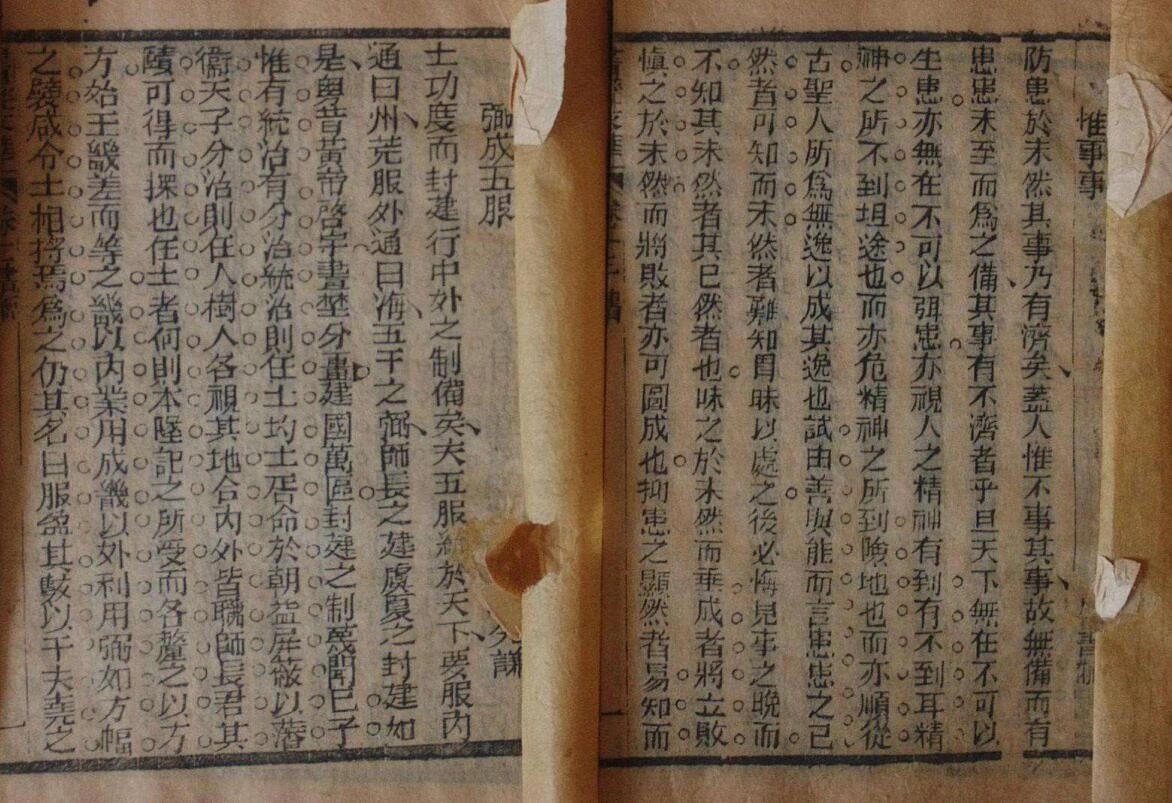 惟事事
防患於未然其事乃有濟矣蓋人惟不事其事故無備而有
患患未至而爲之備其事有不濟者乎且天下無在不可以
生患亦無在不可以弭患亦視人之精神有到有不到耳精
神之所不到坦途也而亦危精神之所到險地也而亦順從
古聖人所爲無逸以成其逸也試由善與能而言患患之已
然者可知而未然者難知自昧以處之後必悔見事之晚而
不知其未然者其已然者也昧之於未然而垂成者將立敗
愼之於未然而將敗者亦可圖成也抑患之顯然者易知而
弼成五服
謙
士功度而封建行中外之制備矣夫五服統於天下要服內
通曰州荒服外通曰海五千之弼師長之建虞夏之封建如
是與昔黃帝啓宇畫埜分畺建國萬區封建之制蔑聞已予
惟有統治有分治統治則任土均土居命於朝益屏蔽以藩
衞天子分治則任人樹人各視其地合內外皆職師長君其
賾可得而探也任土者何則本墬記之所受而各釐之以方
方始王畿差而等之畿以內業用成畿以外利用弼如方幅
之襞咸令土相捋焉爲之仍其名曰服盈其駭以千夫堯之